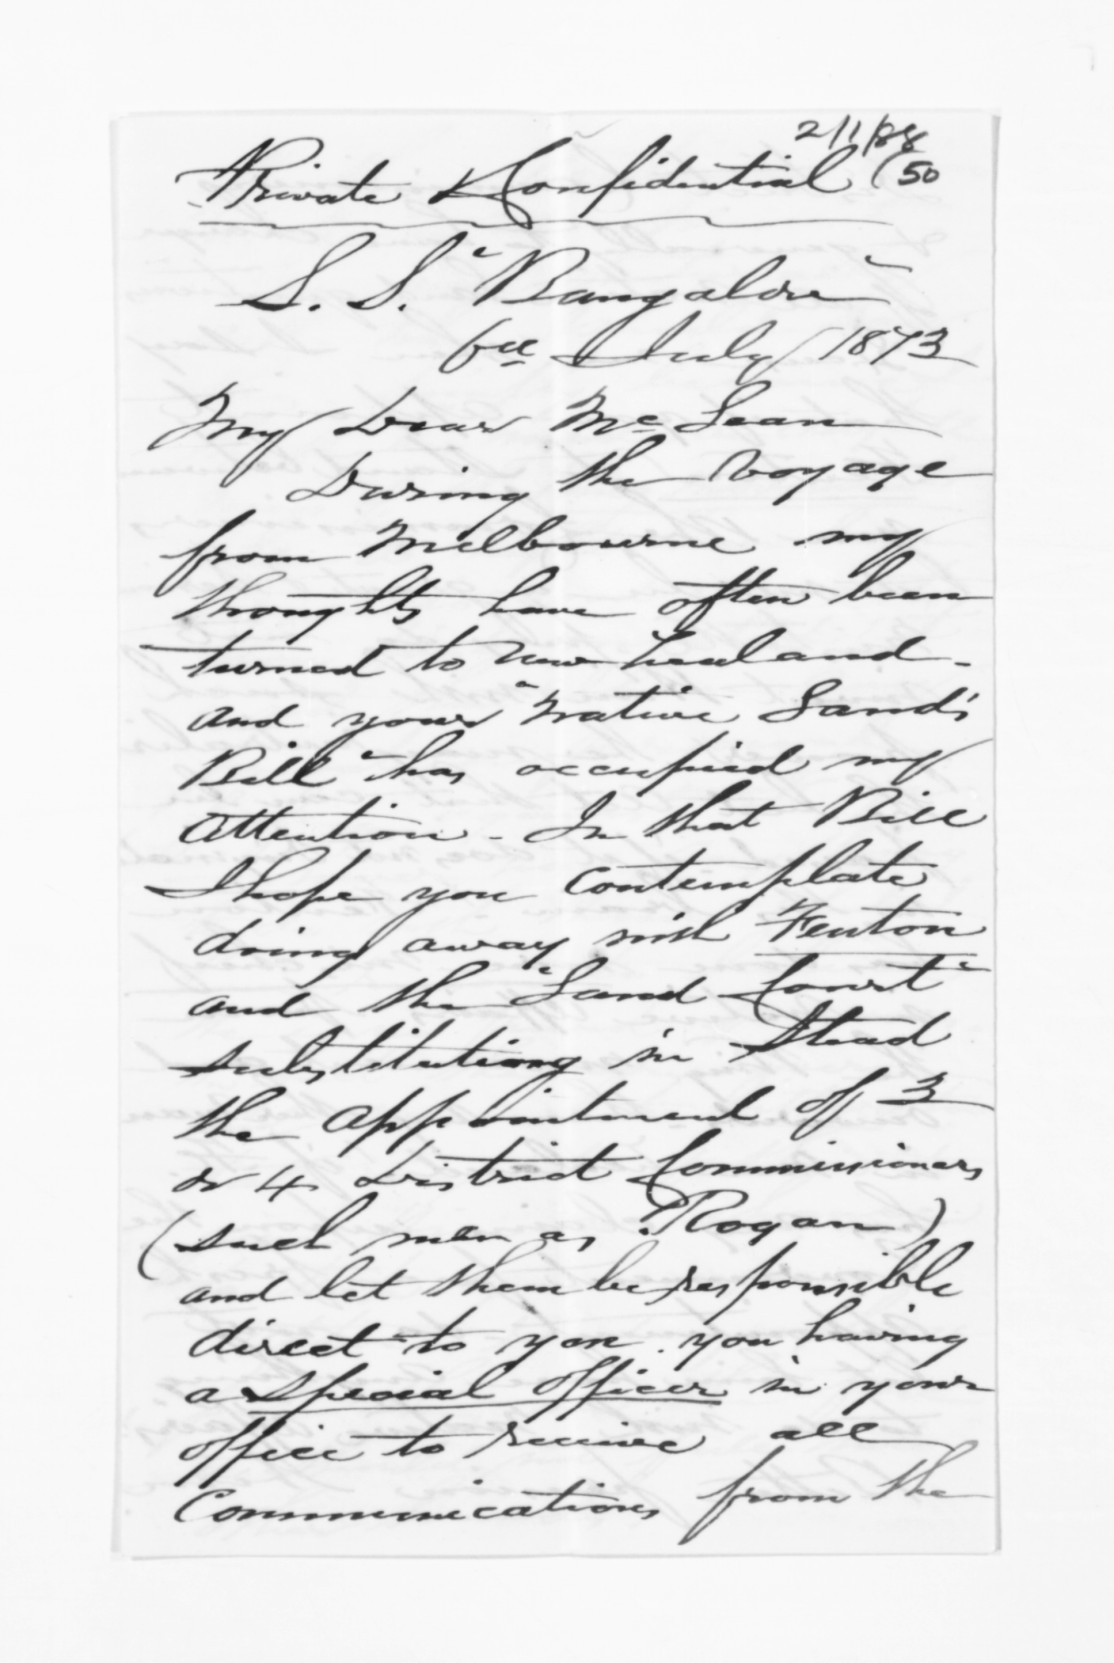 2/1/88
Private & Confidential (50
S. S. "Bangalore"
6th July 1873
My Dear McLean
During the Voyage
from Melbourne my
thoughts have often been
turned to New Zealand -
and your "Native Land's
Bill" has occupied my
attention - In that Bill
I hope you contemplate
doing away with Fenton
and the "Land Court"
substituting in Stead
the appointment of 3
or 4 District Commissioners
(such men as Rogan)
and let them be responsible
direct to you. you having
a special officer in your
office to receive all
Communications from the